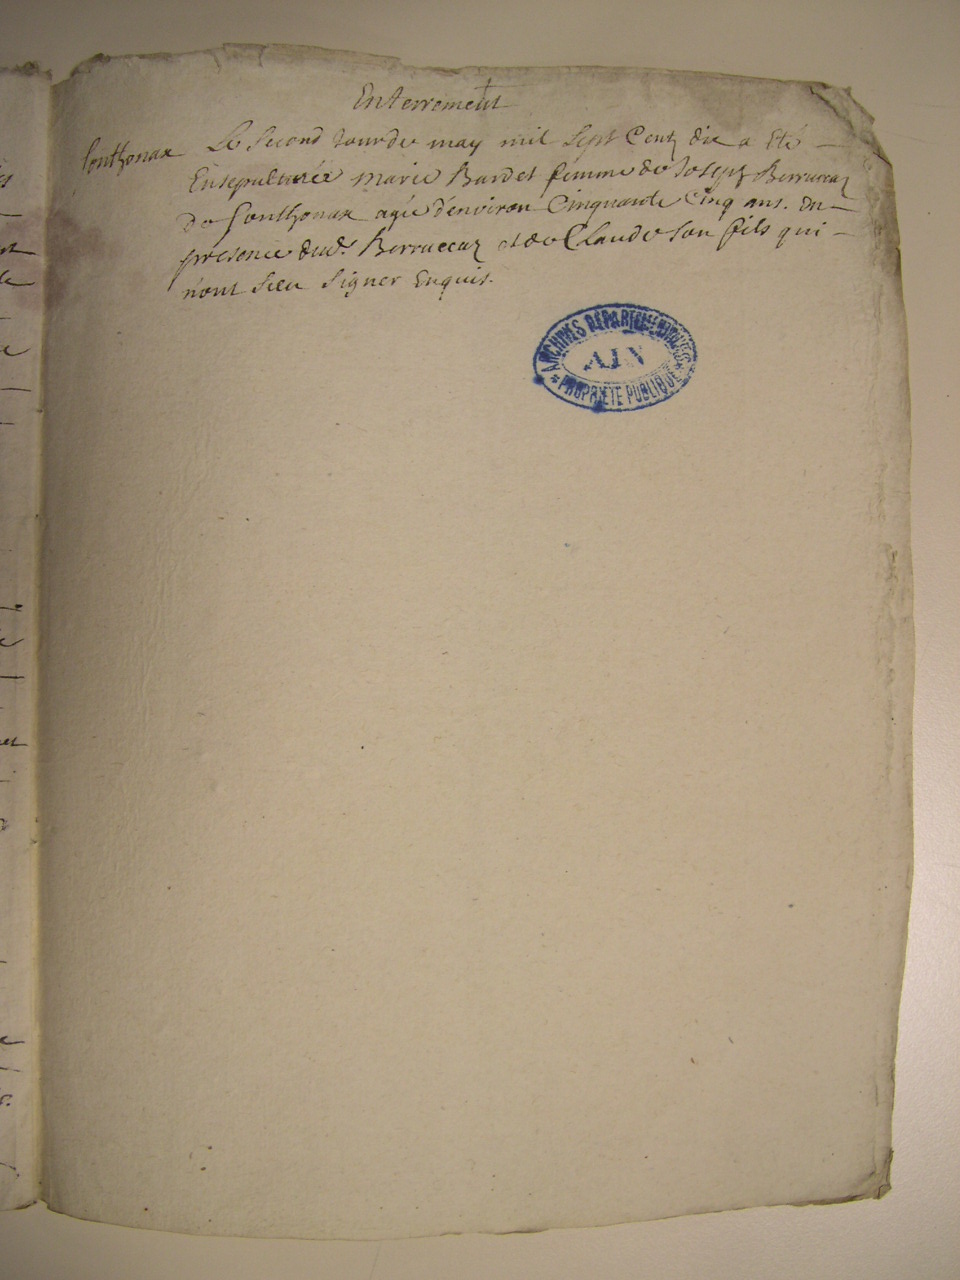 Enterrement
Sonthonax Le Second Jour de may mil Sept Centz dix a Eté
Ensepulturée marie Bardet femme de Joseph Berruccaz
de Sonthonax agée d'environ Cinquante Cinq ans. En
presence dud. Berruccaz et de Claude son fils qui
n'ont Sceu Signer Enquis.
ARCHIVES DEPARTEMENTALES
AIN
* PROPRIÉTÉ PUBLIQUE *